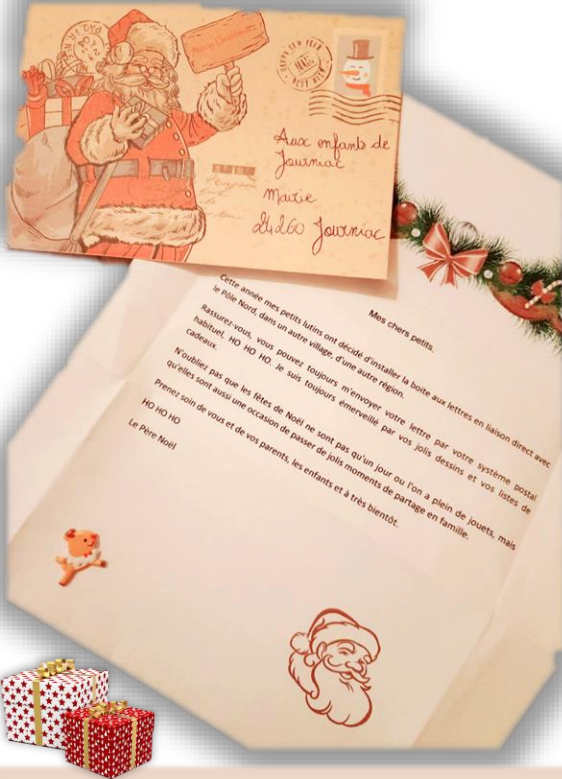 Merry Christmas
HAPPY NEW YEAR
Aux enfants de
Journiac
Mairie
24260 Journiac
Mes chers petits,
Cette année mes petits lutins ont décidé d'installer la boite aux lettres en liaison direct avec
le Pôle Nord, dans un autre village, d'une autre région.
Rassurez-vous, vous pouvez toujours m'envoyer votre lettre par votre système postal
habituel, HO HO HO. Je suis toujours émerveillé par vos jolis dessins et vos listes de
cadeaux.
N'oubliez pas que les fêtes de Noël ne sont pas qu'un jour ou l'on a plein de jouets, mais
qu'elles sont aussi une occasion de passer de jolis moments de partage en famille.
Prenez soin de vous et de vos parents, les enfants et à très bientôt.
HO HO HO
Le Père Noël